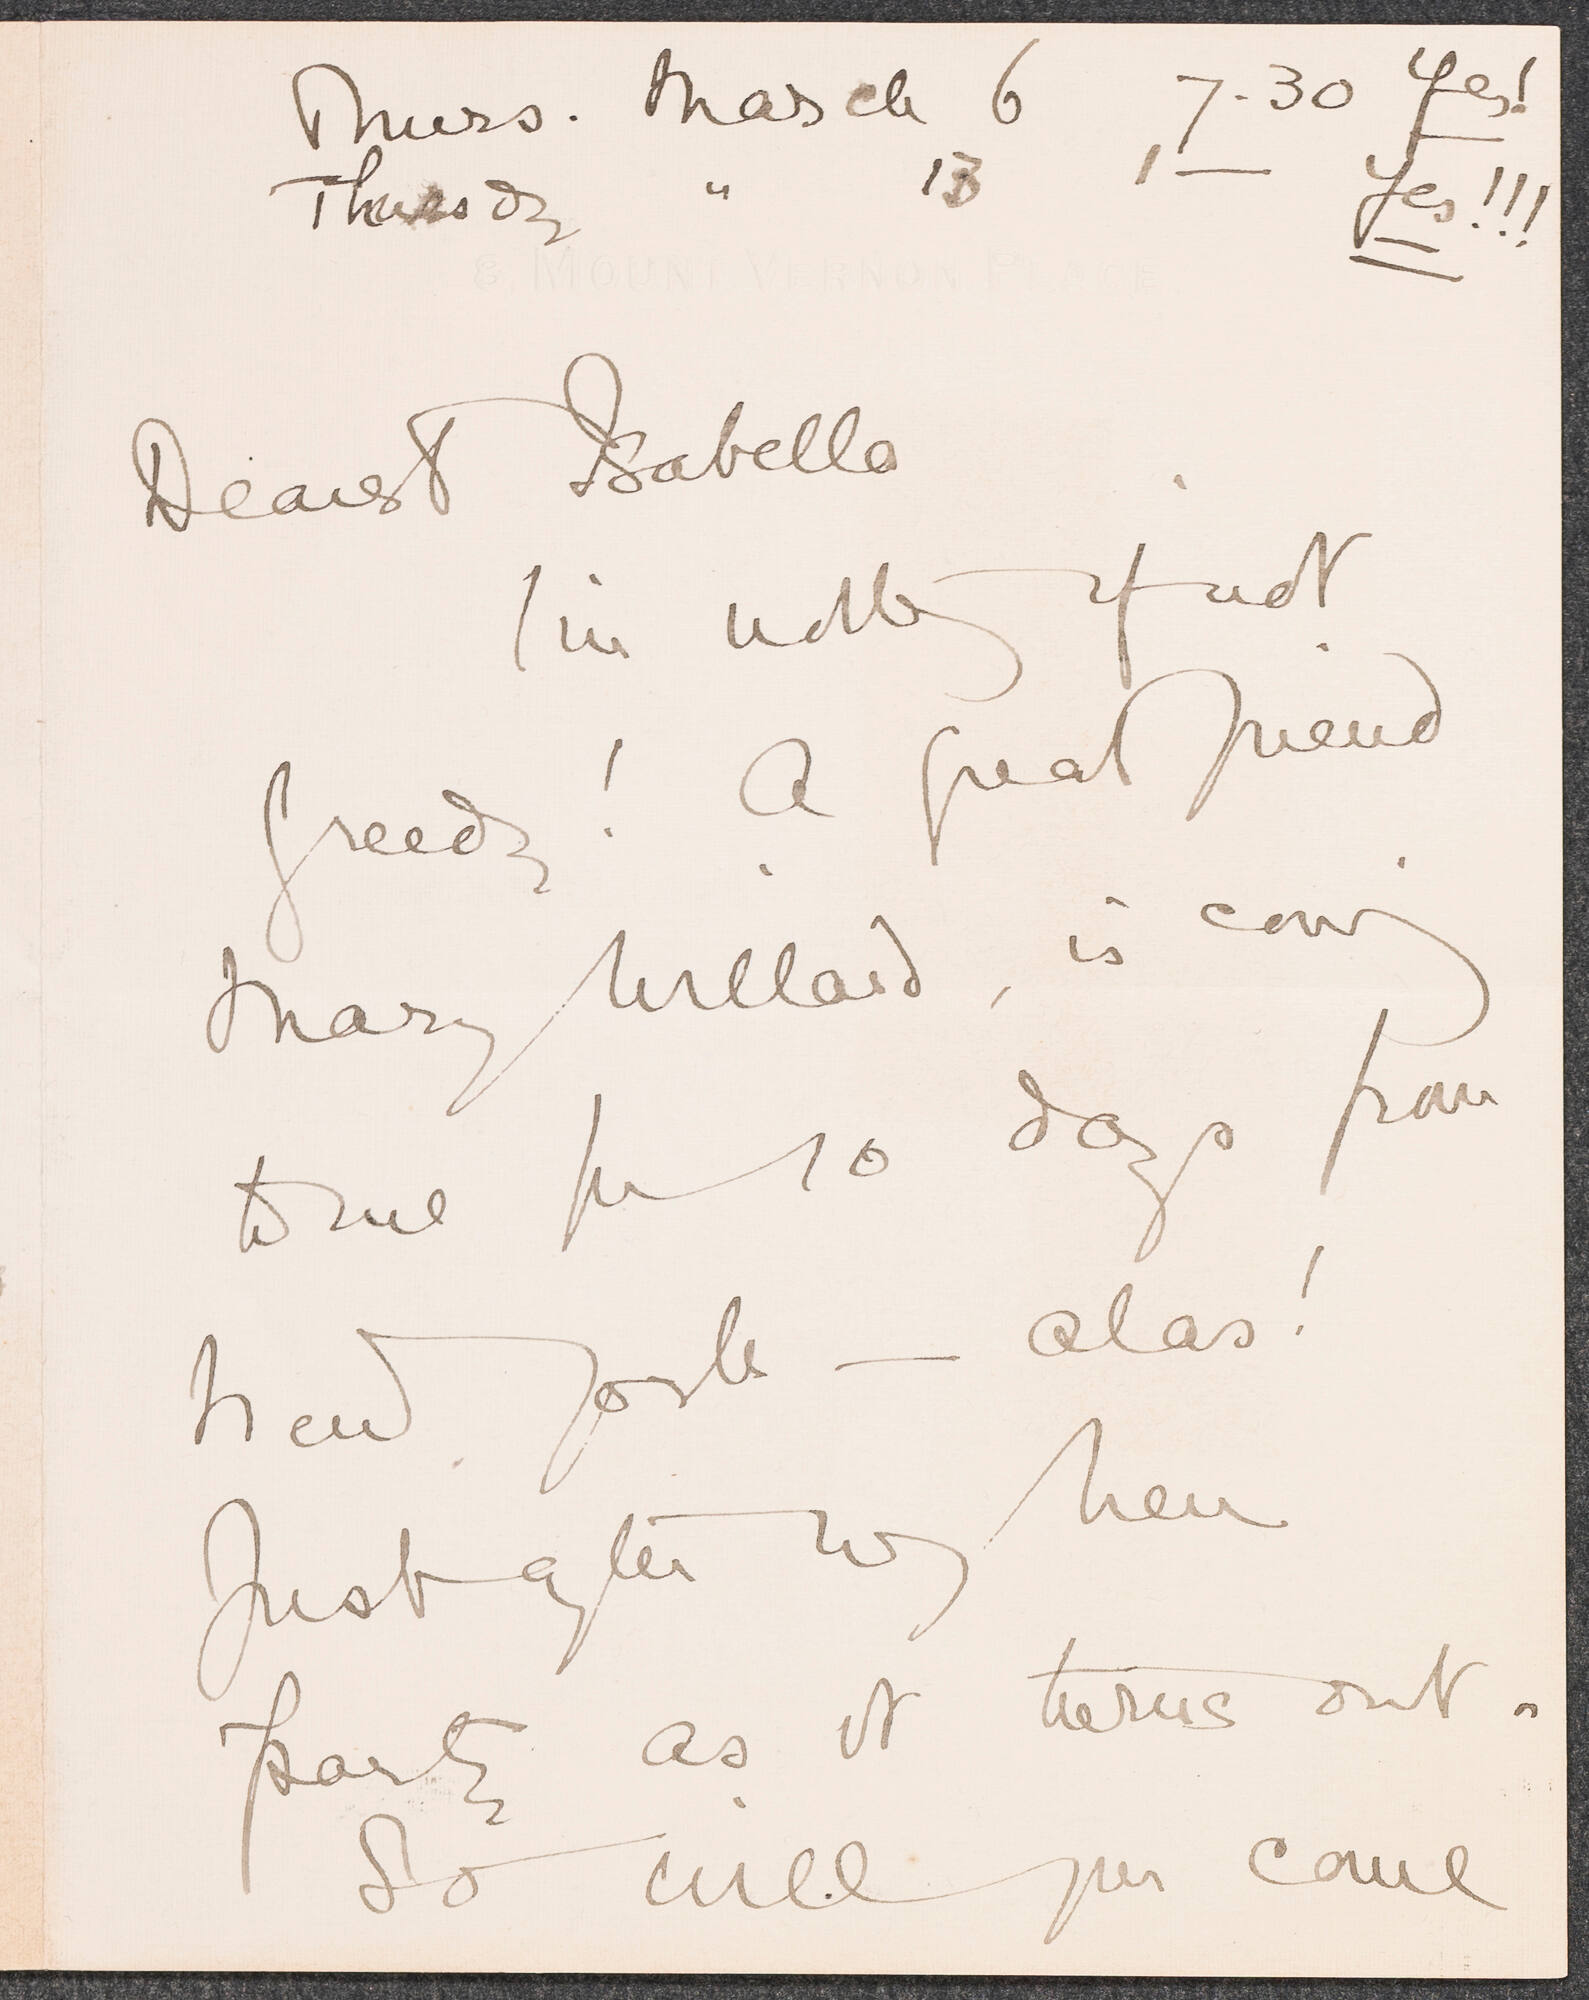 Thurs. March 6 7-30 Yes!
Thursdy " 13 1— Yes!!!
8, MOUNT VERNON PLACE.
Dearest Isabella
I'm nothing if not
greedy! A great friend
Mary Willard, is coming
to me for 10 days from
New York — alas!
Just after my New
party as it turns out.
So will you come